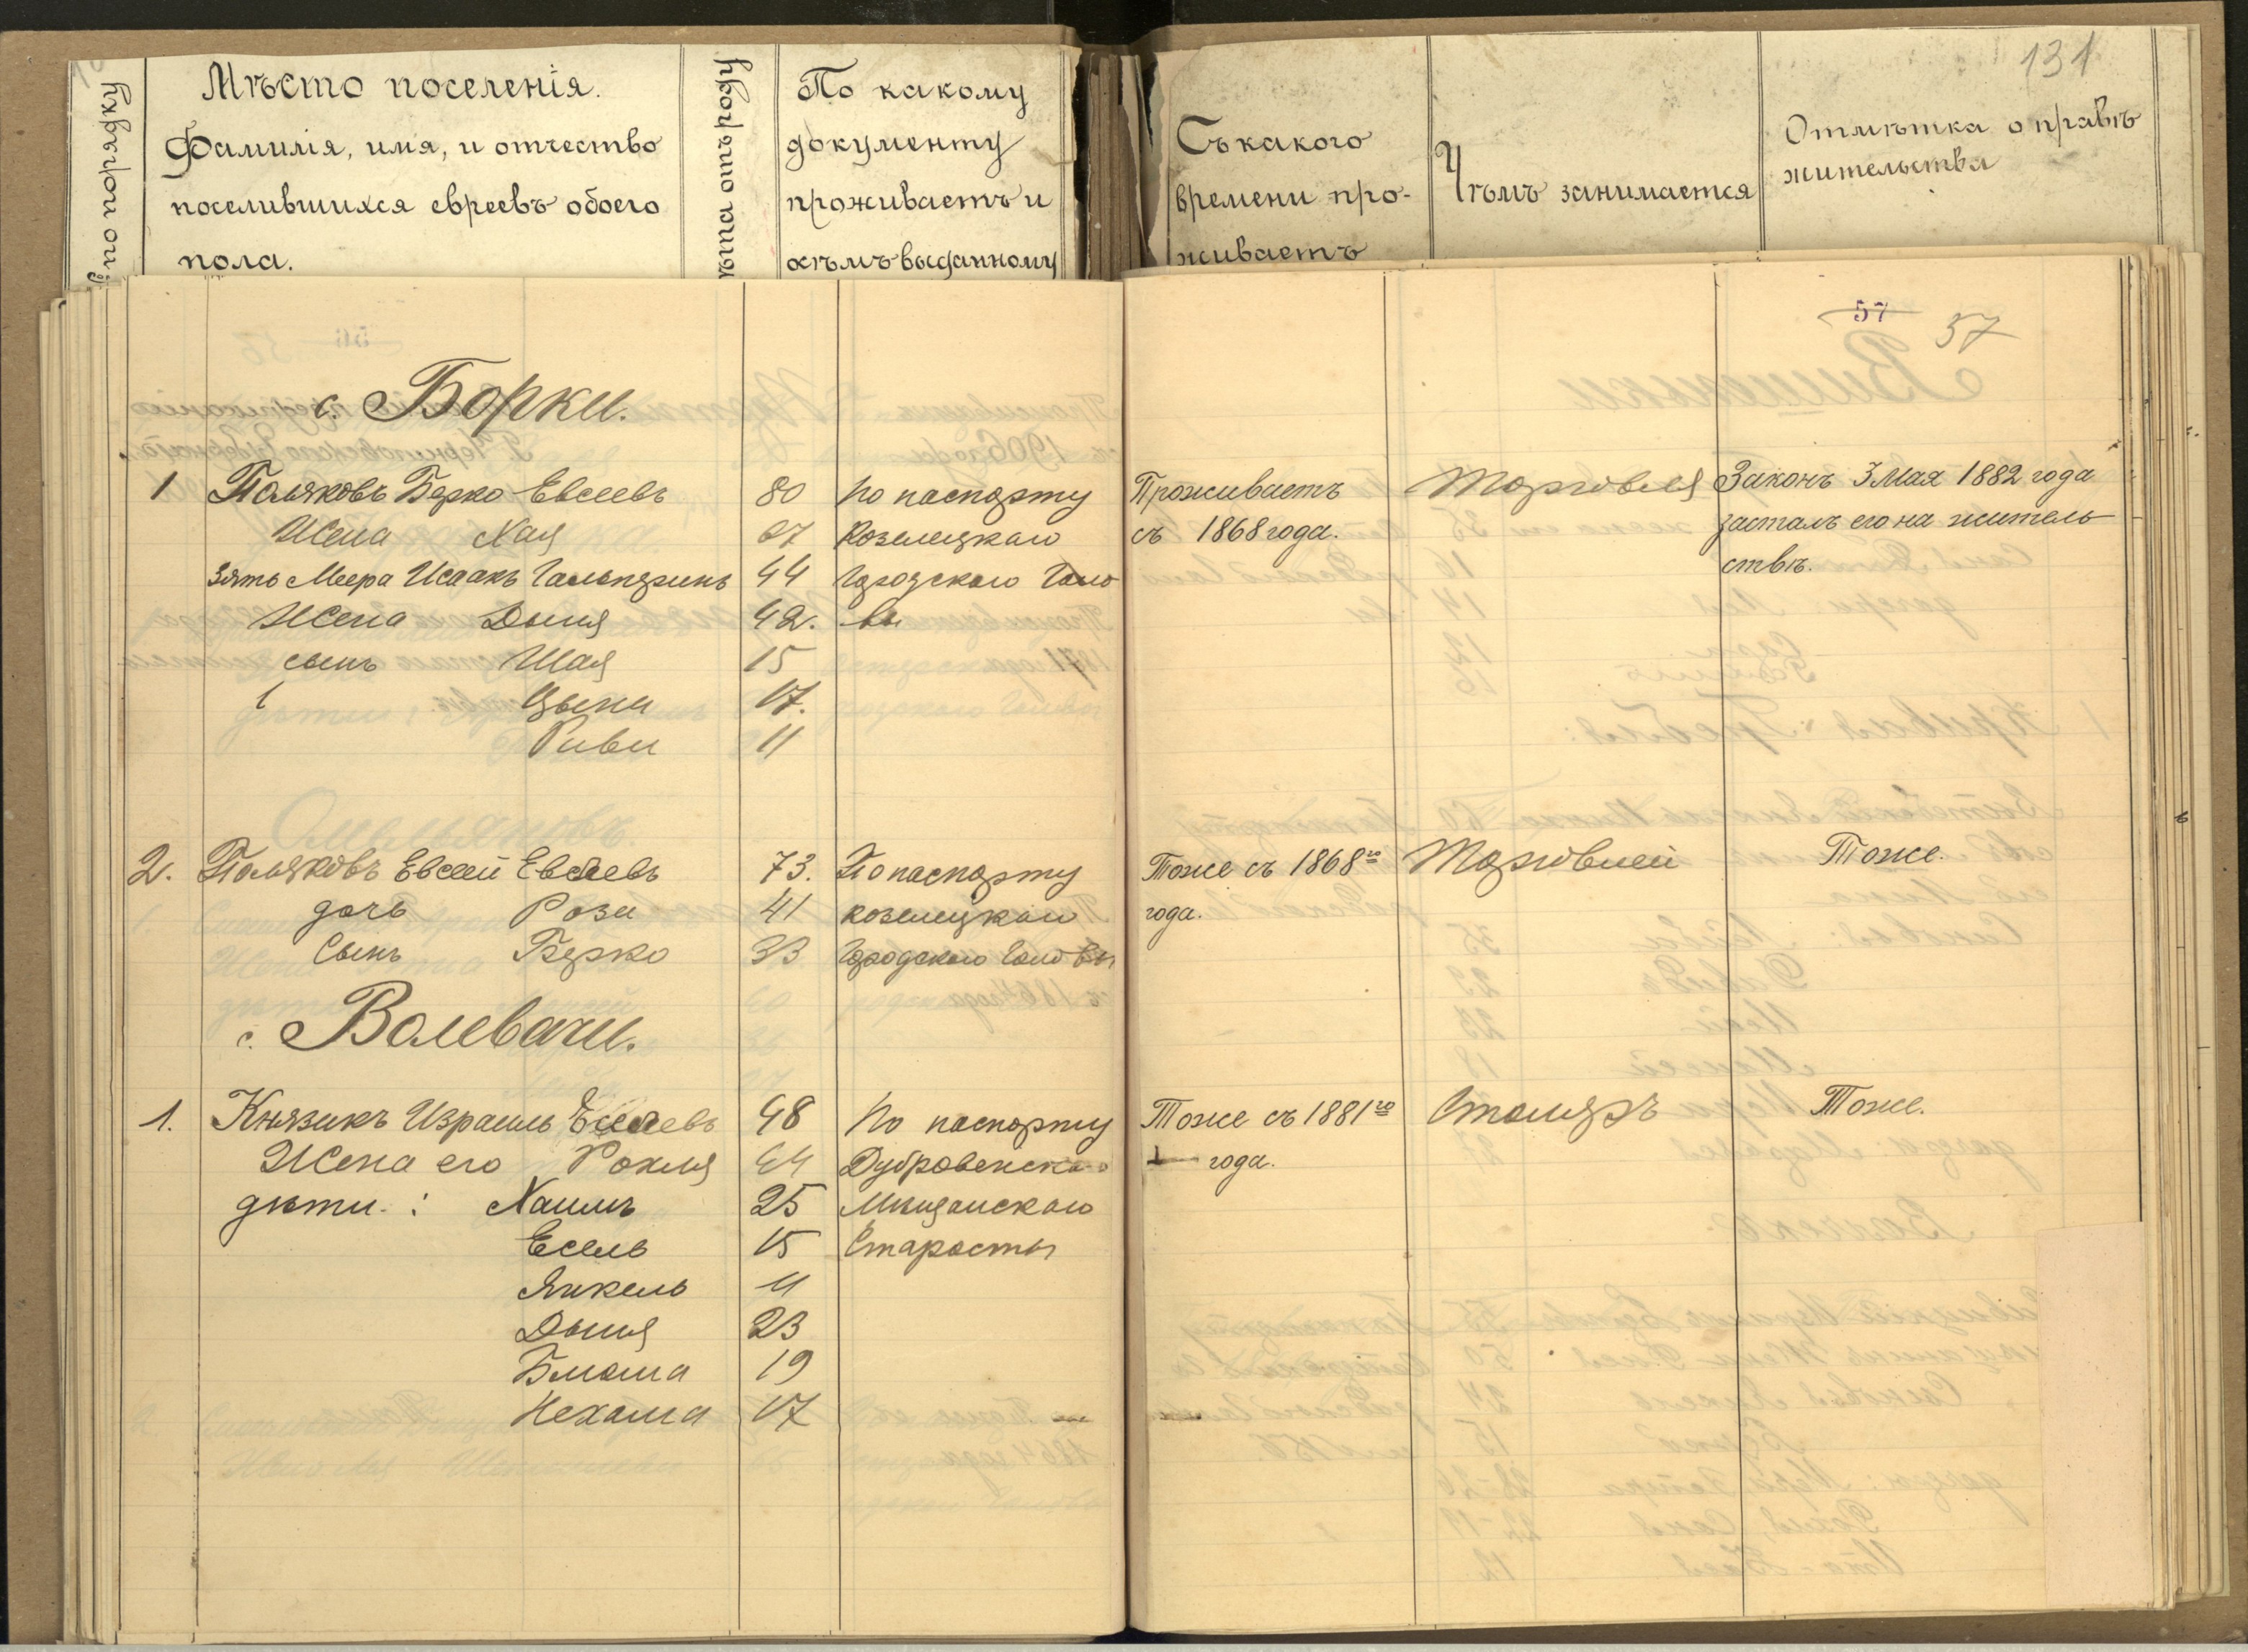 131
по порядку
Мѣсто поселенія.
Фамилія, имя, и отчество
поселившихся евреевъ обоего
пола.
ѣта отъ роду
По какому
документу
проживаетъ и
кѣмъ выданному
Съ какого
времени про-
живаетъ
Чѣмъ занимается
Отмѣтка о правѣ
жительства
57
57
с. Борки.
1 Поляковъ Берко Евсеевъ 80 По паспорту Проживаетъ Торговля Законъ 3 Мая 1882 года
Жена Хая 67 Козелецкаго съ 1868 года. засталъ его на житель
зять Меера Исаакъ Гальперинъ 44 Городского Голо ствѣ.
Жена Дыня 42. вы
сынъ Шая 15
Цына 17.
Риви 11
2. Поляковъ Евсей Евсеевъ 73. По паспорту Тоже съ 1868го Торговлей Тоже.
дочь Роза 41 козелецкаго года.
Сынъ Берко 33 Городского Головы
с. Волевачи.
1. Князикъ Израиль Еселевъ 48 По паспорту Тоже съ 1881го Столяръ Тоже.
Жена его Рохля 44 Дубровенска года.
дѣти: Хаимъ 25 Мѣщанскаго
Есель 15 Старосты
Янкель 11
Дыня 23
Блюма 19
Нехама 17